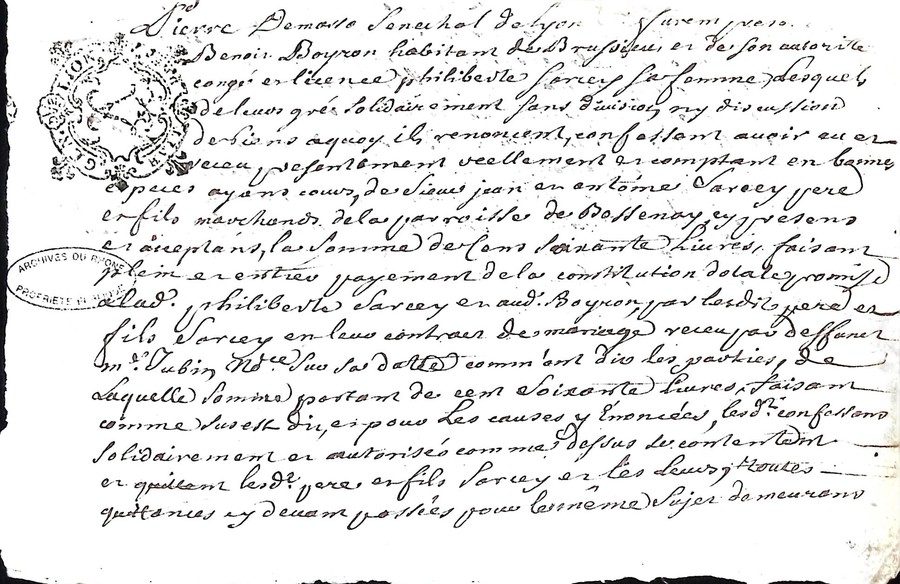 Pierre Demasso Senechal de Lyon furent presens
Benoit Boyron habitant de Brussieu et de son autorité
congé et licence philiberte Sarcey sa femme, Lesquels
de leurs gré solidairement sans division, ny discussion
de biens aquoy ils renoncent, confessant avoir eu et
receu, presentement reellement et comptant en bonnes
especes ayans cours, de Sieurs jean et antoine Sarcey pere
et fils marchands de la parroisse de Bessenay, cy presens
et acceptans, la somme de Cens soixante Livres, faisant
plein et entier payement de la constitution dotale promise
a lad. philiberte Sarcey et aud. Boyron, par lesdits pere et
fils Sarcey en leur contract de mariage receu par deffunt
me. Jubin Nore. Sur sa datte comm'ont dit les parties, de
Laquelle somme portant de cent Soixante Livres, faisant
comme sus est dit, et pour Les causes y Enoncées, lesdts confessans
solidairement et autorisée comme dessus se contentent
et quittent lesdts. pere et fils Sarcey et les leurs, toutes
quittances cy devant passées pour le même Sujet demeurans
ARCHIVES DU RHONE
PROPRIÉTÉ PUBLIQUE
GENERALITE LION